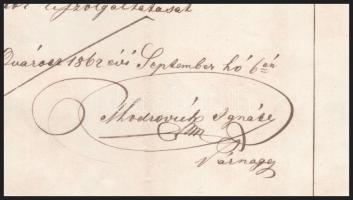 kiszolgáltatását
Udvárosz 1862 évi September hó 6án
Modrovich Ignácz
Várnagy